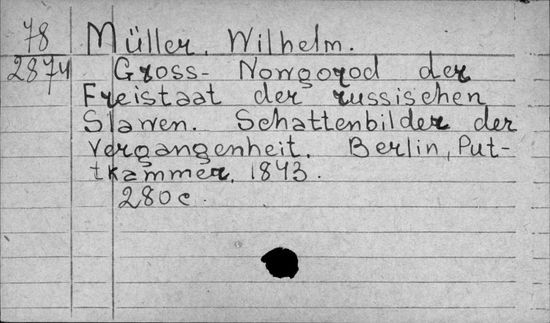 78 Müller, Wilhelm.
2874 Gross- Nowgorod der
Freistaat der russischen
Slawen. Schattenbilder der
Vergangenheit. Berlin, Put-
tkammer, 1843.
280 c.